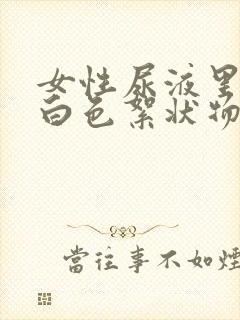 女性尿液里
白色絮状物
當往事不如煙